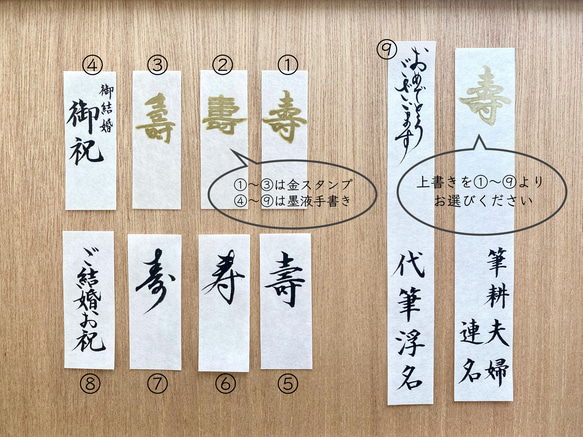 ①
寿
②
壽
③
寿
④
御結婚
御祝
①〜③は金スタンプ
④〜⑨は墨液手書き
⑤
壽
⑥
寿
⑦
寿
⑧
ご結婚お祝
⑨
おめでとう
ございます
代筆浮名
寿
上書きを①〜⑨より
お選びください
筆耕夫婦
連名